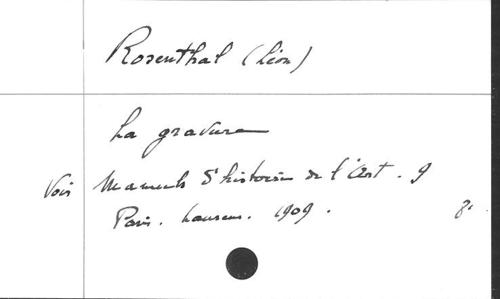 Rosenthal (Léon)
La gravure
Voir Manuels d'histoire de l'Art. 9
Paris. Laurens. 1909. 8°